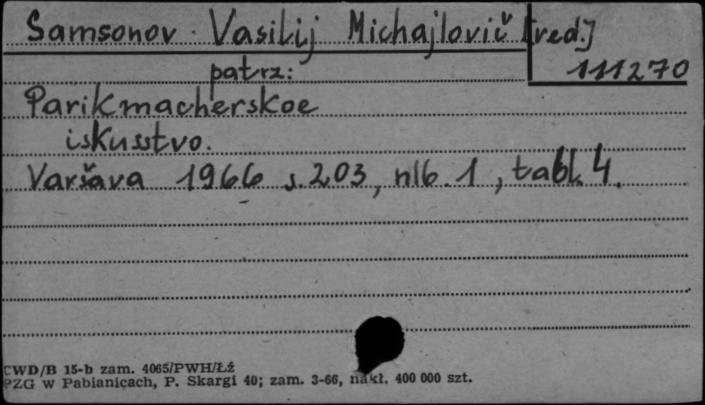 Samsonov Vasilij Michajlovič [red.]
patrz: 111270
Parikmacherskoe
iskusstvo.
Varšava 1966 s. 203, nlb. 1, tabl. 4.
CWD/B 15-b zam. 4065/PWH/Łź
PZG w Pabianicach, P. Skargi 40; zam. 3-66, nakł. 400 000 szt.